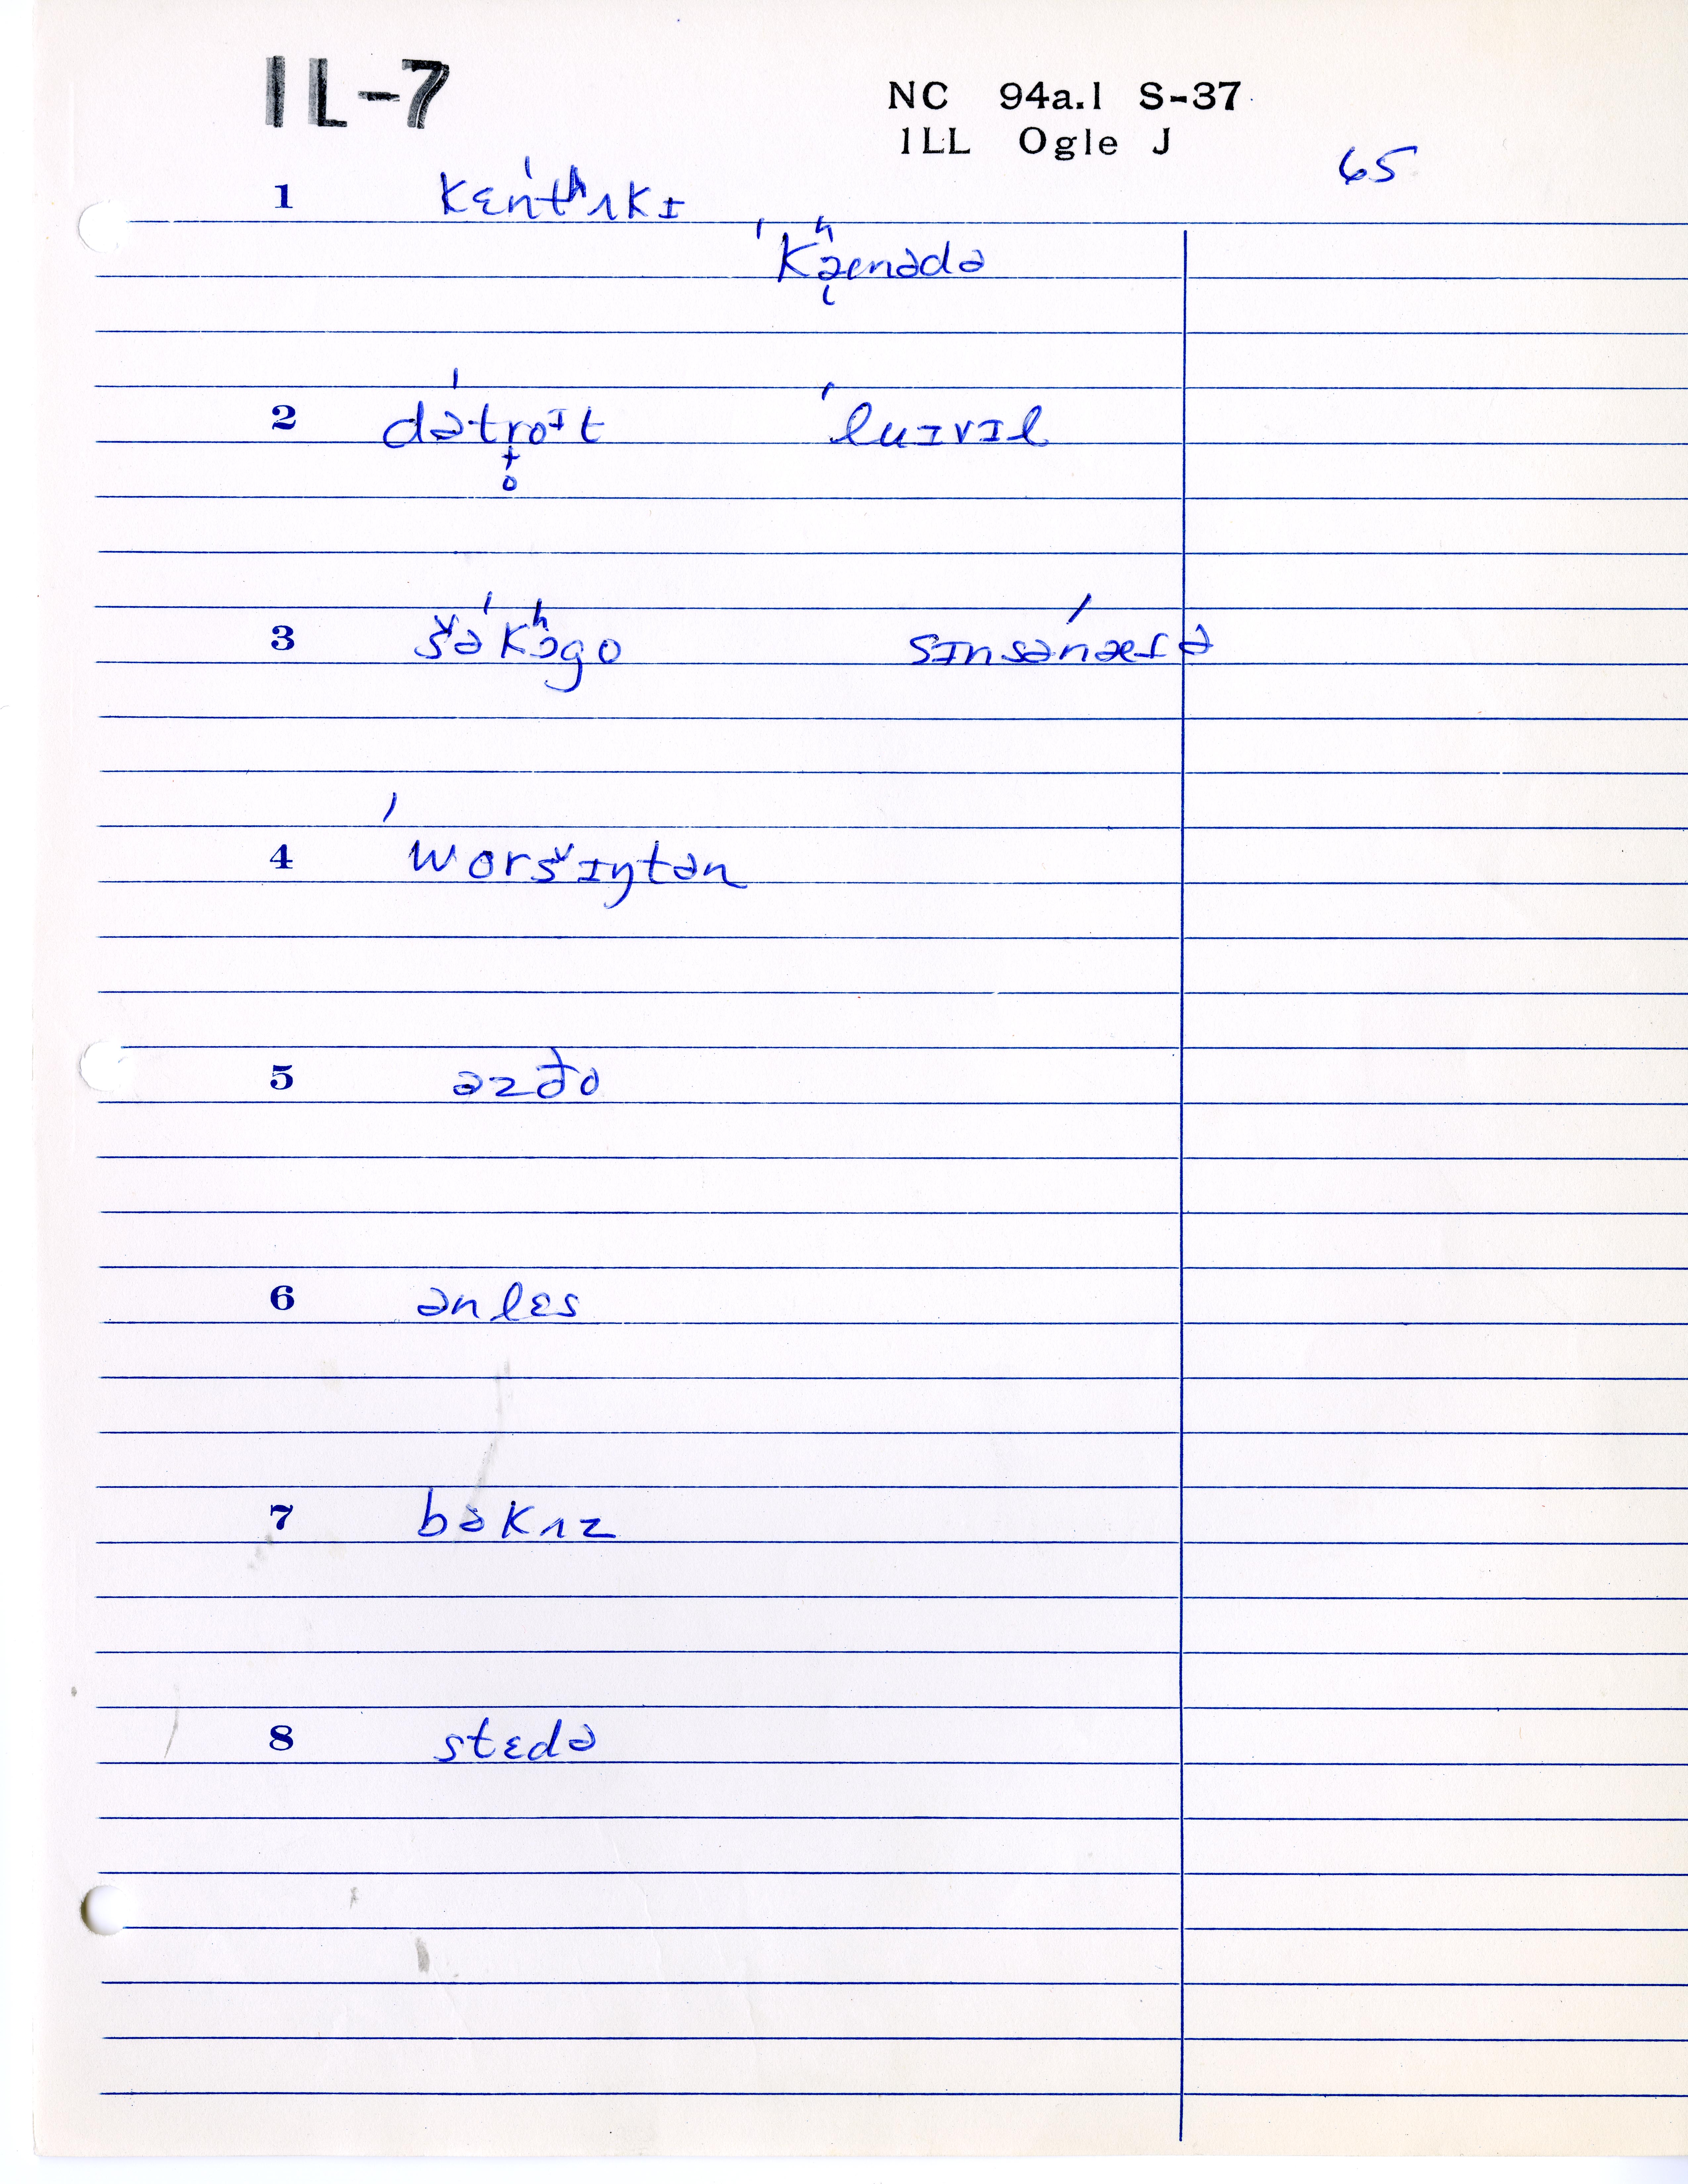 IL-7
NC 94a.1 S-37
ILL Ogle J
65
1 kɛn'tʰʌkɪ
'kʰæ̨nədə
2 də'troᶦt 'luɪvɪl
3 šə'kʰɔgo sɪnsə'næɾə
4 'woršɪŋtən
5 əzðo
6 ənlɛs
7 bəkʌz
8 stɛdə